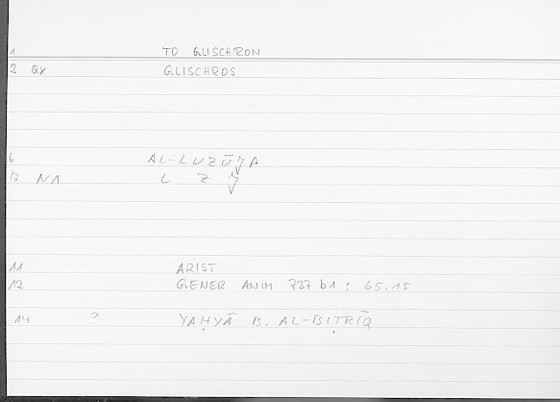 1 TO GLISCHRON
2 QX GLISCHROS
6 AL-LUZŪǦA
7 NA L Z Ǧ
11 ARIST
12 GENER ANIM 737 b1 : 65.15
14 ? YAḤYĀ B. AL-BIṬRĪQ